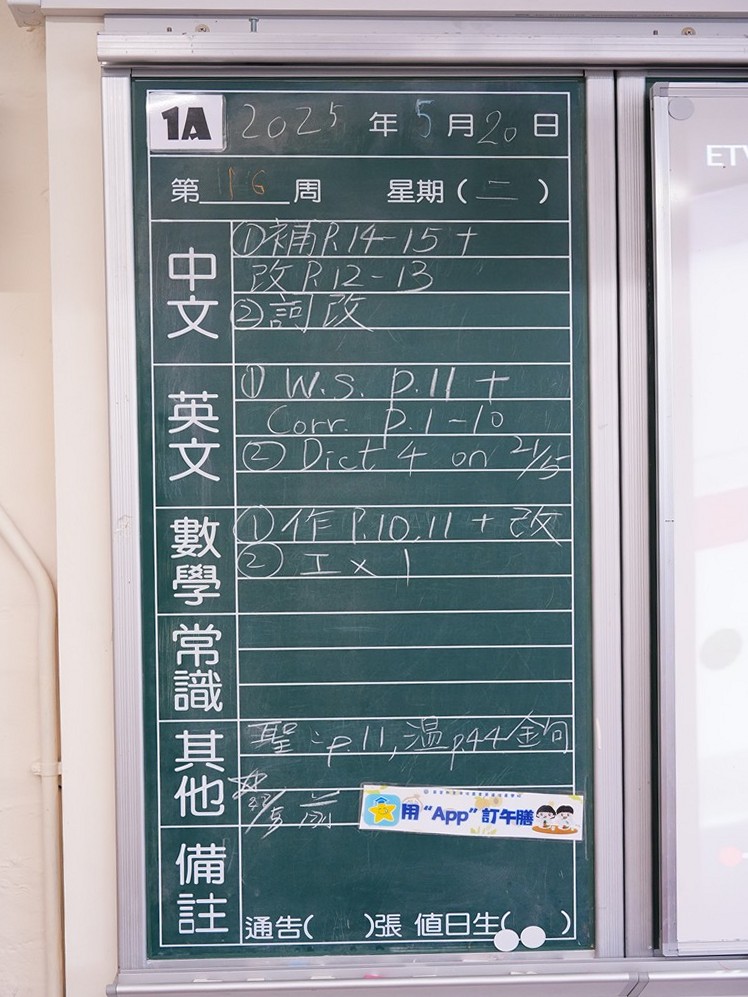 1A 2025 年 5 月 20 日
第 周 星期 ( 二 )
中文
①補P.14-15+
改P.12-13
②詞改
英文
① W.S. p.11 +
Corr. p.1-10
② Dict 4 on 21/5
數學
①作 P.10,11 + 改
② 工 x 1
常識
其他
聖:p11,温p44
前
用“App”訂午膳
備註
通告( )張 值日生( )
ETV